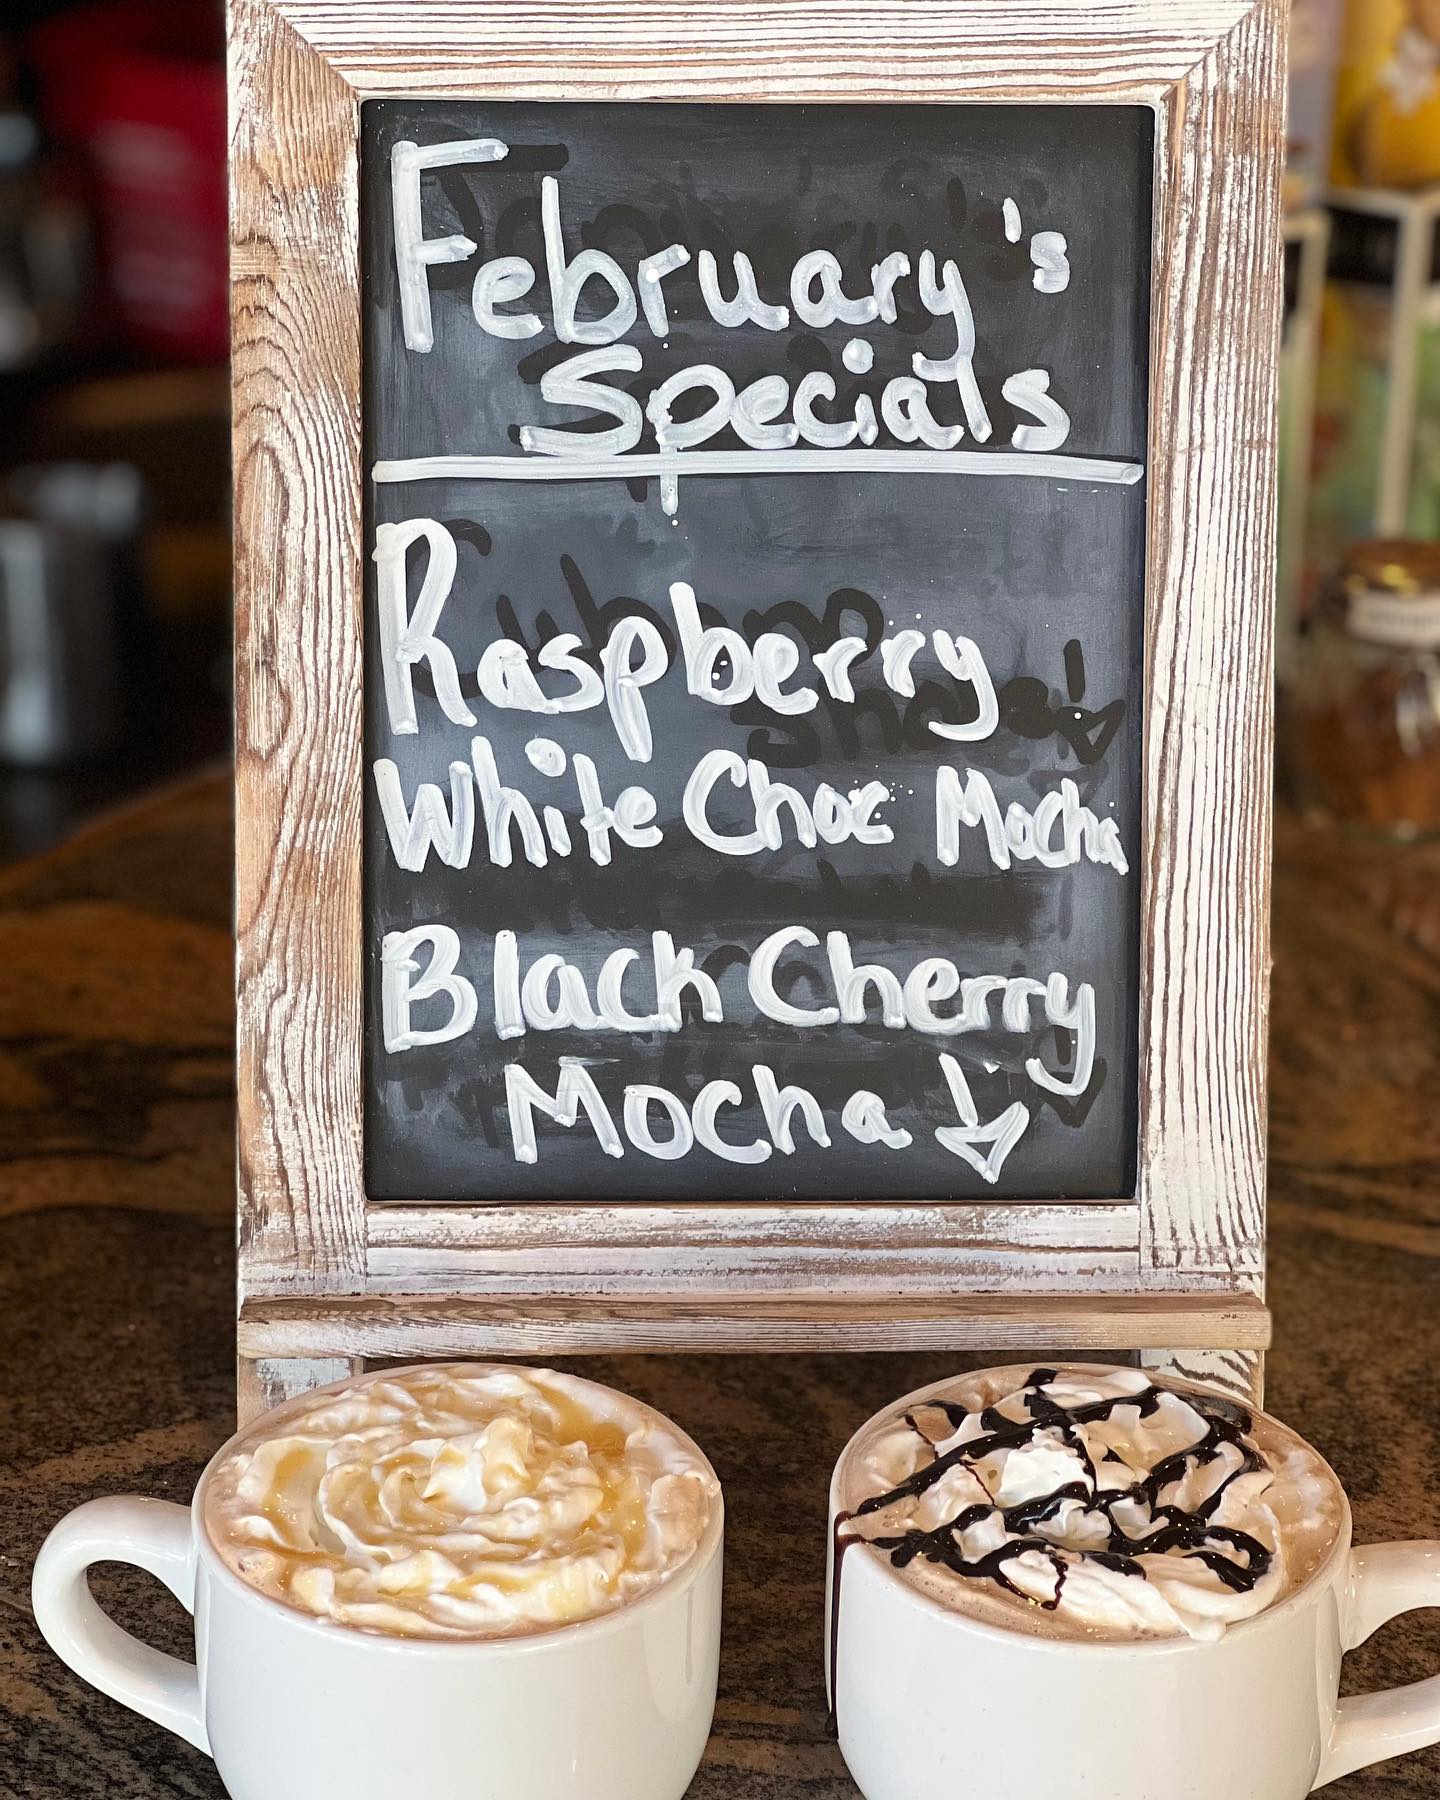 February's
Specials
Raspberry
White Choc Mocha
Black Cherry
Mocha